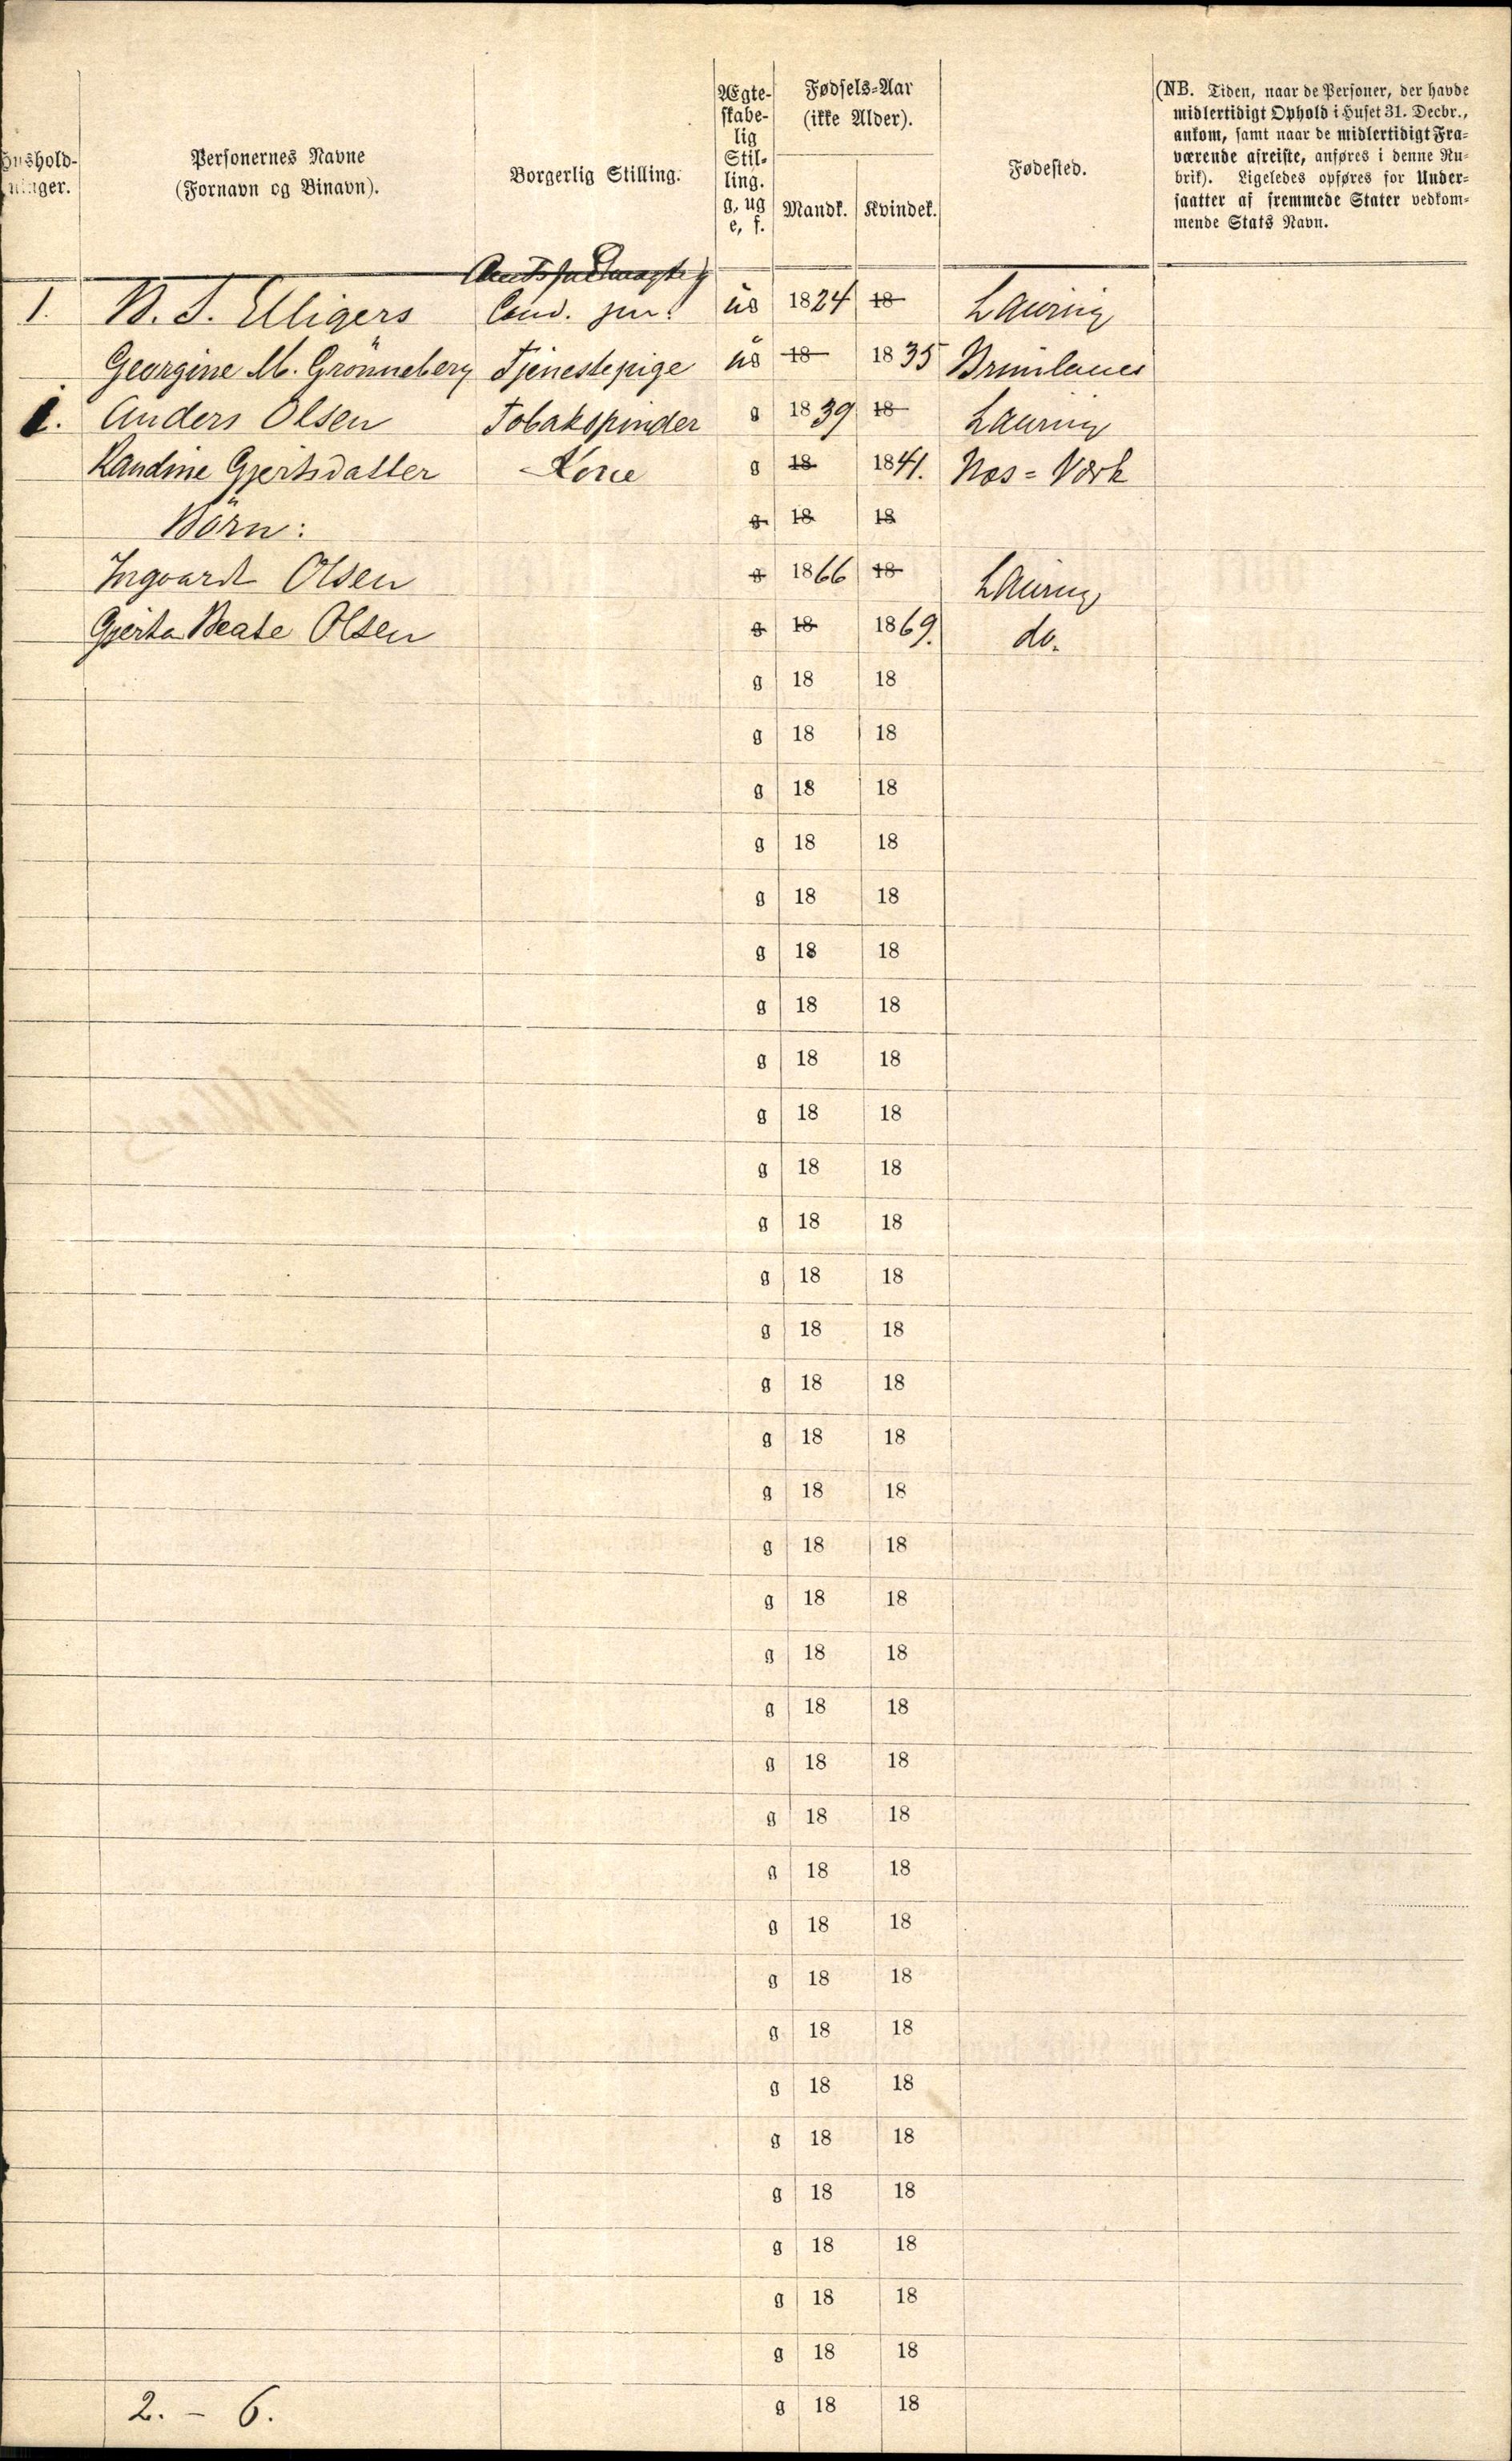 Hushold-
ninger.
Personernes Navne
(Fornavn og Binavn).
Borgerlig Stilling.
Ægte-
skabe-
lig
Stil-
ling.
g, ug
e, f.
Fødsels-Aar
(ikke Alder).
Mandk. Kvindek.
Fødested.
(NB. Tiden, naar de Personer, der havde
midlertidigt Ophold i Huset 31. Decbr.,
ankom, samt naar de midlertidigt Fra-
værende afreiste, anføres i denne Ru-
brik). Ligeledes opføres for Under-
saatter af fremmede Stater vedkom-
mende Stats Navn.
Amtsfuldmægtig
1. N. S. Elligers Cand. jur. ug 1824 18 Laurvig
Georgine M. Grönneberg Tjenestepige ug 18 1835 Brunlanes
1. Anders Olsen Tobakspinder g 1839 18 Laurvig
Randine Gjertsdatter Kone g 18 1841. Næs=Værk
Börn: g 18 18
Ingvardt Olsen g 1866 18 Laurvig
Gjerta Beate Olsen g 18 1869. do.
g 18 18
g 18 18
g 18 18
g 18 18
g 18 18
g 18 18
g 18 18
g 18 18
g 18 18
g 18 18
g 18 18
g 18 18
g 18 18
g 18 18
g 18 18
g 18 18
g 18 18
g 18 18
g 18 18
g 18 18
g 18 18
g 18 18
g 18 18
g 18 18
g 18 18
g 18 18
g 18 18
g 18 18
g 18 18
g 18 18
g 18 18
g 18 18
2. - 6. g 18 18